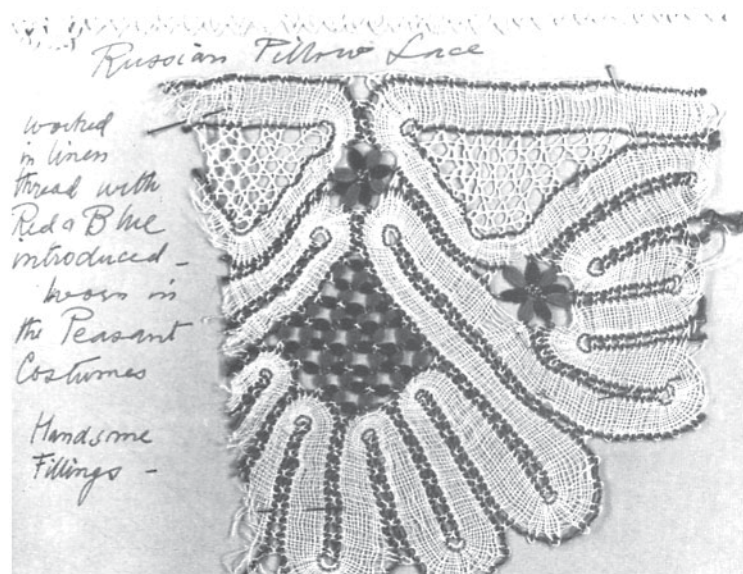 Russian Pillow Lace
worked
in linen
thread with
Red & Blue
introduced -
worn in
the Peasant
Costumes
Handsome
Fillings -